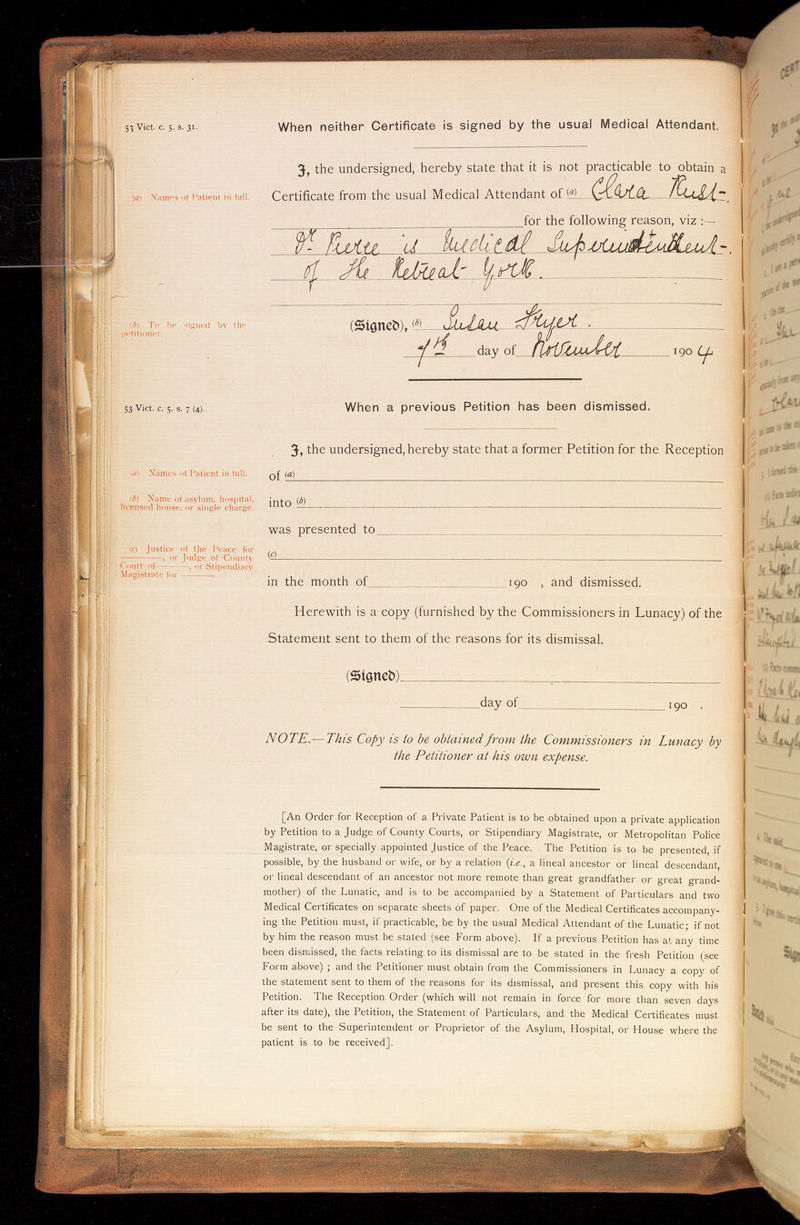 53 Vict. c. 5. s. 31.
When neither Certificate is signed by the usual Medical Attendant.
I, the undersigned, hereby state that it is not practicable to obtain a
(a) Names of Patient in full.
Certificate from the usual Medical Attendant of (a) Clara
for the following reason, viz :—
Dr Pierce is Medical Superintendent
of the Retreat York.
(b) To be signed by the
petitioner.
(Signed), (b) Susan Fryer.
7th day of November 1904
53 Vict. c. 5. s. 7 (4).
When a previous Petition has been dismissed.
I, the undersigned, hereby state that a former Petition for the Reception
(a) Names of Patient in full.
of (a)
(b) Name of asylum, hospital,
licensed house, or single charge.
into (b)
was presented to
(c) Justice of the Peace for
———, or Judge of County
Court of ———, or Stipendiary
Magistrate for ———
(c)
in the month of 190 , and dismissed.
Herewith is a copy (furnished by the Commissioners in Lunacy) of the
Statement sent to them of the reasons for its dismissal.
(Signed)
day of 190 .
NOTE.—This Copy is to be obtained from the Commissioners in Lunacy by
the Petitioner at his own expense.
[An Order for Reception of a Private Patient is to be obtained upon a private application
by Petition to a Judge of County Courts, or Stipendiary Magistrate, or Metropolitan Police
Magistrate, or specially appointed Justice of the Peace. The Petition is to be presented, if
possible, by the husband or wife, or by a relation (i.e., a lineal ancestor or lineal descendant,
or lineal descendant of an ancestor not more remote than great grandfather or great grand-
mother) of the Lunatic, and is to be accompanied by a Statement of Particulars and two
Medical Certificates on separate sheets of paper. One of the Medical Certificates accompany-
ing the Petition must, if practicable, be by the usual Medical Attendant of the Lunatic; if not
by him the reason must be stated (see Form above). If a previous Petition has at any time
been dismissed, the facts relating to its dismissal are to be stated in the fresh Petition (see
Form above) ; and the Petitioner must obtain from the Commissioners in Lunacy a copy of
the statement sent to them of the reasons for its dismissal, and present this copy with his
Petition. The Reception Order (which will not remain in force for more than seven days
after its date), the Petition, the Statement of Particulars, and the Medical Certificates must
be sent to the Superintendent or Proprietor of the Asylum, Hospital, or House where the
patient is to be received].
CERT